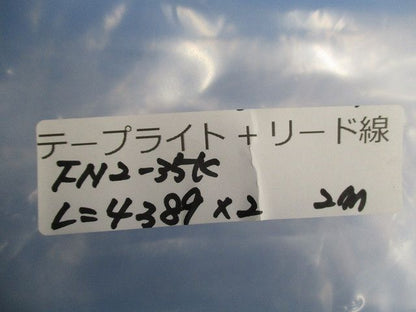 テープライト＋リード線
FN2-35K
L=4389×2 2m